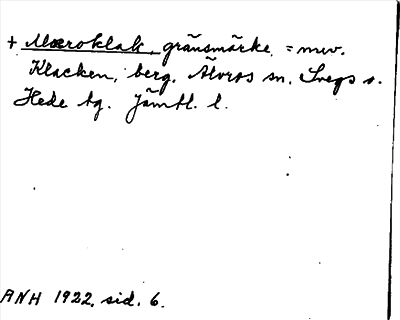 + Mæroklak, gränsmärke = nuv.
Klacken, berg. Älvros sn. Svegs o.
Hede tg. Jämtl. l.
ANH 1922. sid. 6.